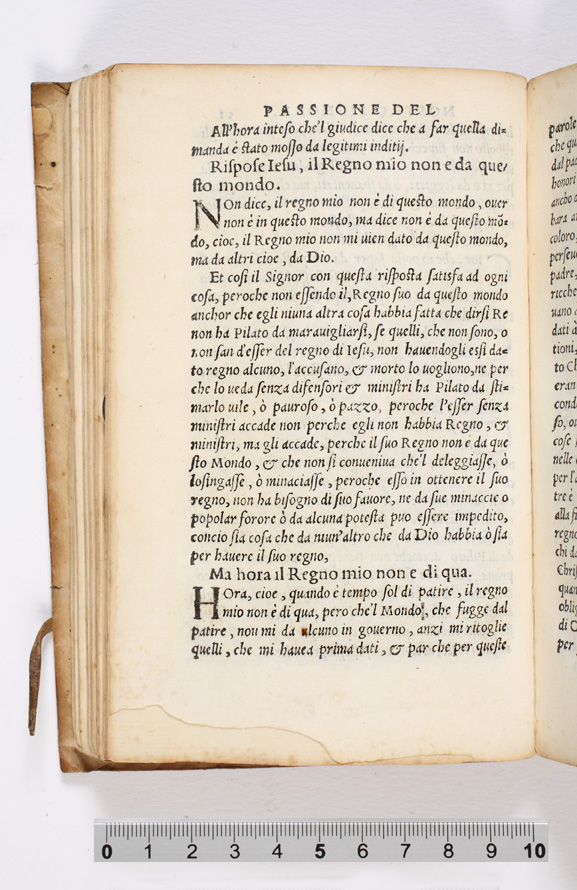 PASSIONE DEL
All'hora inteso che'l giudice dice che a far quella di=
manda è stato mosso da legitimi inditij.
Rispose Iesu, il Regno mio non e da que/
sto mondo.
NOn dice, il regno mio non è di questo mondo, ouer
non è in questo mondo, ma dice non è da questo mō=
do, cioe, il Regno mio non mi uien dato da questo mondo,
ma da altri cioe, da Dio.
Et cosi il Signor con questa risposta satisfa ad ogni
cosa, peroche non essendo il Regno suo da questo mondo
anchor che egli niuna altra cosa habbia fatta che dirsi Re
non ha Pilato da marauigliarsi, se quelli, che non sono, o
non san d'esser del regno di Iesu, non hauendogli essi da=
to regno alcuno, l'accusano, & morto lo uogliono, ne per
che lo ueda senza difensori & ministri ha Pilato da sti=
marlo uile, ò pauroso, ò pazzo, peroche l'esser senza
ministri accade non perche egli non habbia Regno, &
ministri, ma gli accade, perche il suo Regno non è da que
sto Mondo, & che non si conueniua che'l deleggiasse, ò
losingasse, ò minaciasse, peroche esso in ottenere il suo
regno, non ha bisogno di suo fauore, ne da sue minaccie o
popolar forore ò da alcuna potesta puo essere impedito,
concio sia cosa che da niun'altro che da Dio habbia ò sia
per hauere il suo regno,
Ma hora il Regno mio non e di qua.
HOra, cioe, quando è tempo sol di patire, il regno
mio non è di qua, pero che'l Mondo, che fugge dal
patire, nou mi da alcuno in gouerno, anzi mi ritoglie
quelli, che mi hauea prima dati, & par che per queste
parole
che qu
dal pa
honori
ancho
hara
coloro,
perseu
padre,
ricche
uano
dati a
tioni,
to Ch
eran
cond
so, ou
cose
nelle
per l'
tre è
alla fi
regno
chi da
Chri
quan
oblig
di C
per
0 1 2 3 4 5 6 7 8 9 10